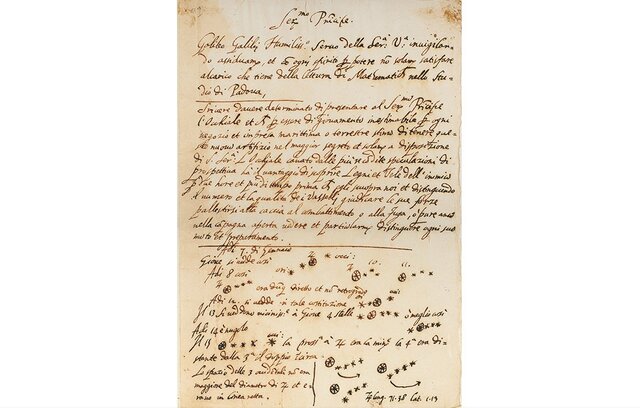 Ser.mo Principe.
Galileo Galilei Humiliss.o Servo della Ser.a V.a invigilan-
do assiduam.te, et con ogni spirito p potere no solam satisfare
al carico che tiene della lettura di Matematich nello Stu-
dio di Padova,
Scrivere d'avere determinato di presentare al Ser.mo Pricipe
l'Occhiale et p essere di giovamento inestimabile p ogni
negozio et impresa marittima o terrestre stimo di tenere que-
sto nuovo artifizio nel maggior segreto et solam a disposizione
di S. Ser.a L'Ochiale cavato dalle più recodite speculazioni di
prospettiva ha il vantaggio di scoprire Legni et Vele dell'inimico
p due hore et più di tempo prima ch egli scuopra noi et distinguendo
il numero et la qualita de i Vasselli giudicare le sue forze
pallestirsi alla caccia al combattimento o alla fuga, o pure anco
nella capagna aperta vedere et particularm distinguere ogni suo
moto et preparamento.
Adi 7. di Gennaio
Giove si vedde cosi
Adi 8 cosi
10. 11.
era dug diretto et no retrogrado
Adi 12. si vedde in tale costituzione
Il 13 si veddono vicinis.e à Giove 4 stelle
ò meglio cosi
Adi 14 è nugolo
Il 15
la pross.a à ♃ era la min.e la 4.a era di-
stante dalla 3.a il doppio
Lo spazio delle 3 occidentali no era
maggiore del diametro di ♃ et e-
rano in linea retta.
♃ long. 71.38 lat. 1.13